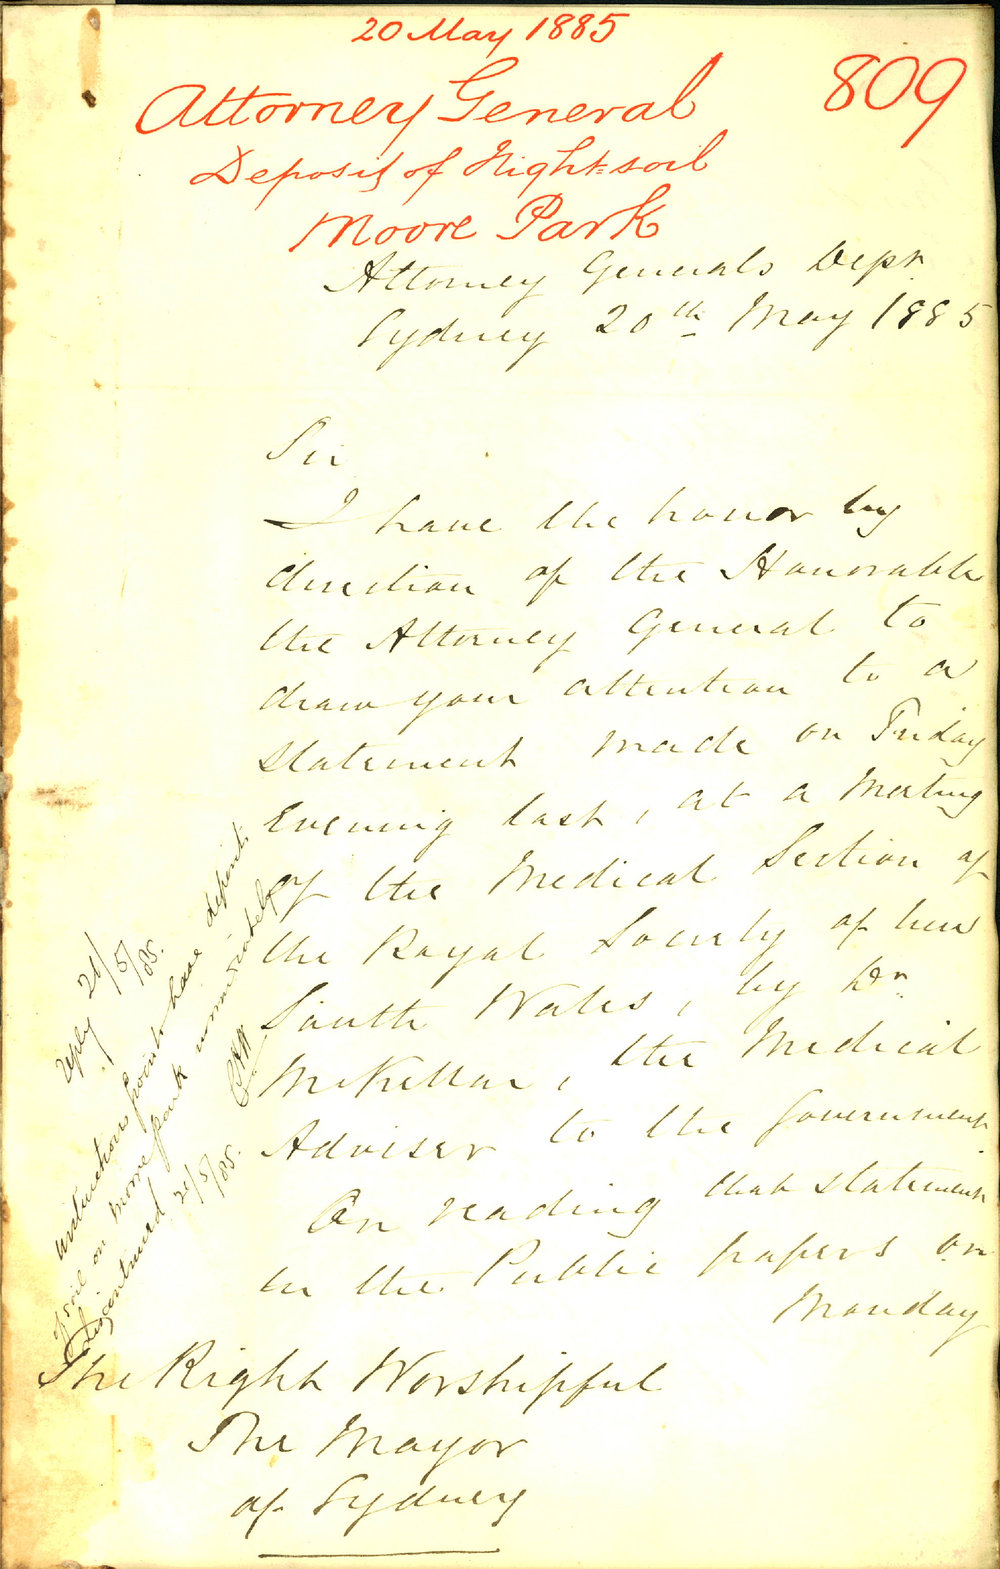 20 May 1885
809
Attorney General
Deposit of Night=soil
Moore Park
Attorney Generals Dept
Sydney 20th May 1885
Sir
I have the honor by
direction of the Honorable
the Attorney General to
draw your attention to a
statement made on Friday
Evening last, at a Meeting
of the Medical Section of
the Royal Society of New
South Wales, by Dr.
McKellar, the Medical
Adviser to the Government
On reading that statement
in the Public papers on
Monday
The Right Worshipful
The Mayor
of Sydney
reply 21/5/85.
instructions have deposit
of soil on moore park immediately
discontinued 21/5/85.